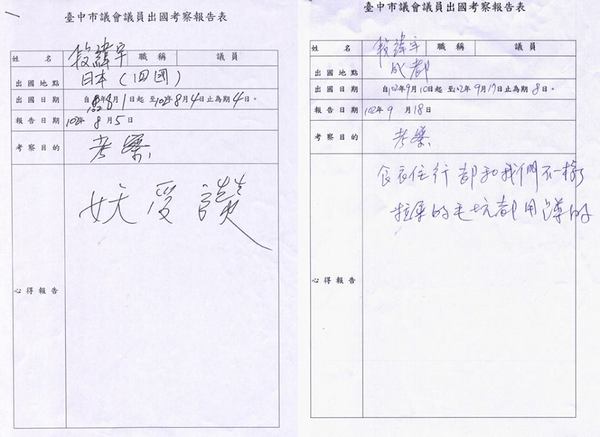 臺中市議會議員出國考察報告表
姓名 段緯宇 職稱 議員
出國地點 日本(四國)
出國日期 自102年8月1日起至102年8月4日止為期4日。
報告日期 102年8月5日
考察目的 考察
心得報告
妖受讚
臺中市議會議員出國考察報告表
姓名 段緯宇 職稱 議員
出國地點 成都
出國日期 自102年9月10日起至102年9月17日止為期8日。
報告日期 102年9月18日
考察目的 考察
心得報告
食衣住行都和我們不一樣
拉屎的毛坑都用蹲的